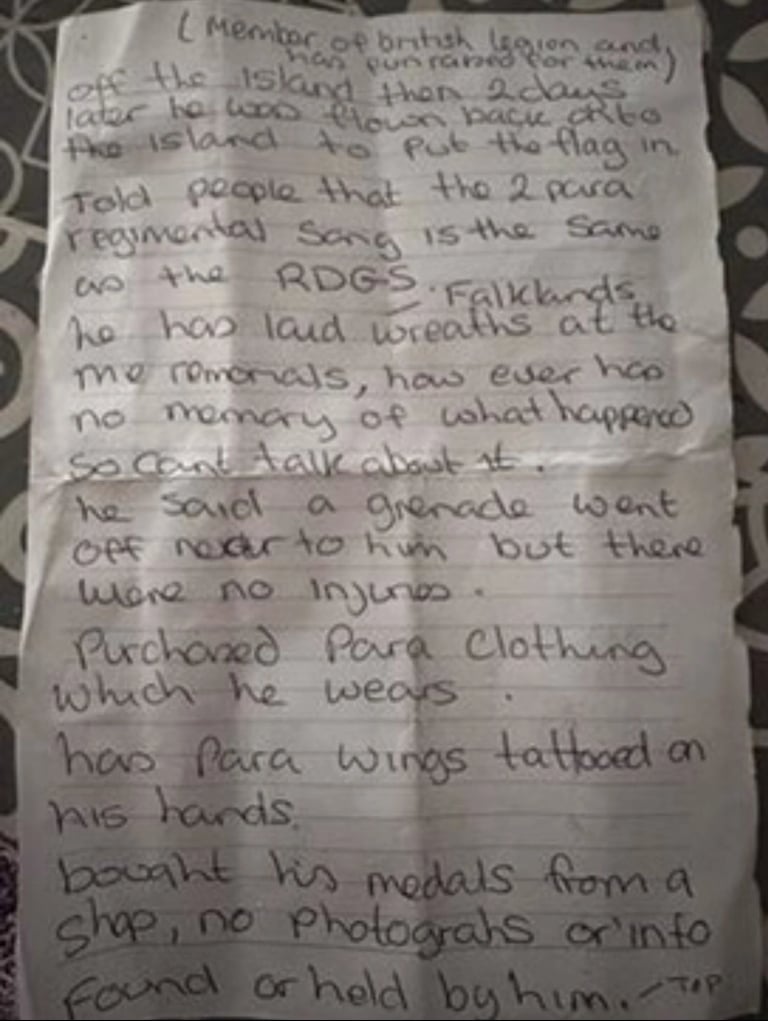 (Member of british legion and
has fun raised for them)
off the island then 2 days
later he was flown back onto
the island to put the flag in.
Told people that the 2 para
regimental song is the same
as the RDGS. Falklands
he has laid wreaths at the
me romorials, how ever has
no memory of what happened
so cant talk about it.
he said a grenade went
off near to him but there
were no injuries.
Purchased Para Clothing
which he wears.
has Para wings tattooed on
his hands.
bought his medals from a
shop, no Photograhs or info
found or held by him. - TOP